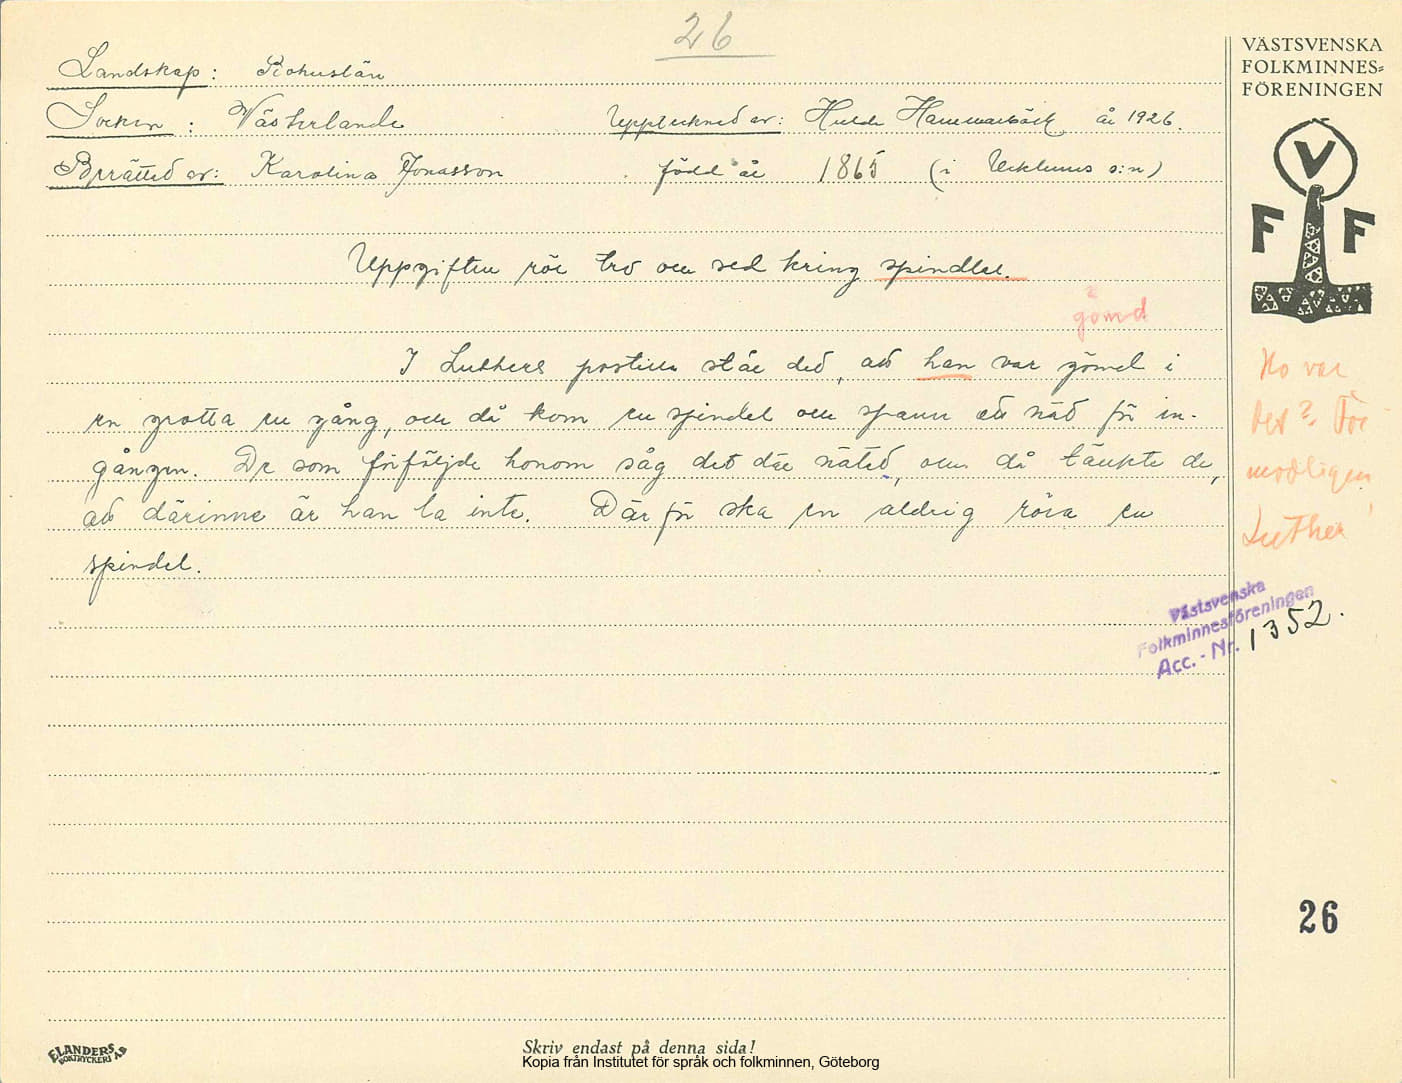 26
VÄSTSVENSKA
FOLKMINNES=
FÖRENINGEN
Landskap: Bohuslän
Socken: Västerlanda Upptecknad av: Hulda Hammarbäck år 1926.
Berättad av: Karolina Jonasson född år 1865 (i Ucklums s:n)
V
F F
Uppgifter rör tro och sed kring spindlar.
gömd
I Luthers postilla står det, att han var gömd i
en grotta en gång, och då kom en spindel och spann ett nät för in-
gången. De som förföljde honom såg det där nätet, och då tänkte de,
att därinne är han la inte. Därför ska en aldrig röra en
spindel.
Ho var
det? För
modligen
Luther!
Västsvenska
Folkminnesföreningen
Acc. - Nr. 1352.
26
ELANDERS
BOKTRYCKERI AB
Skriv endast på denna sida!
Kopia från Institutet för språk och folkminnen, Göteborg